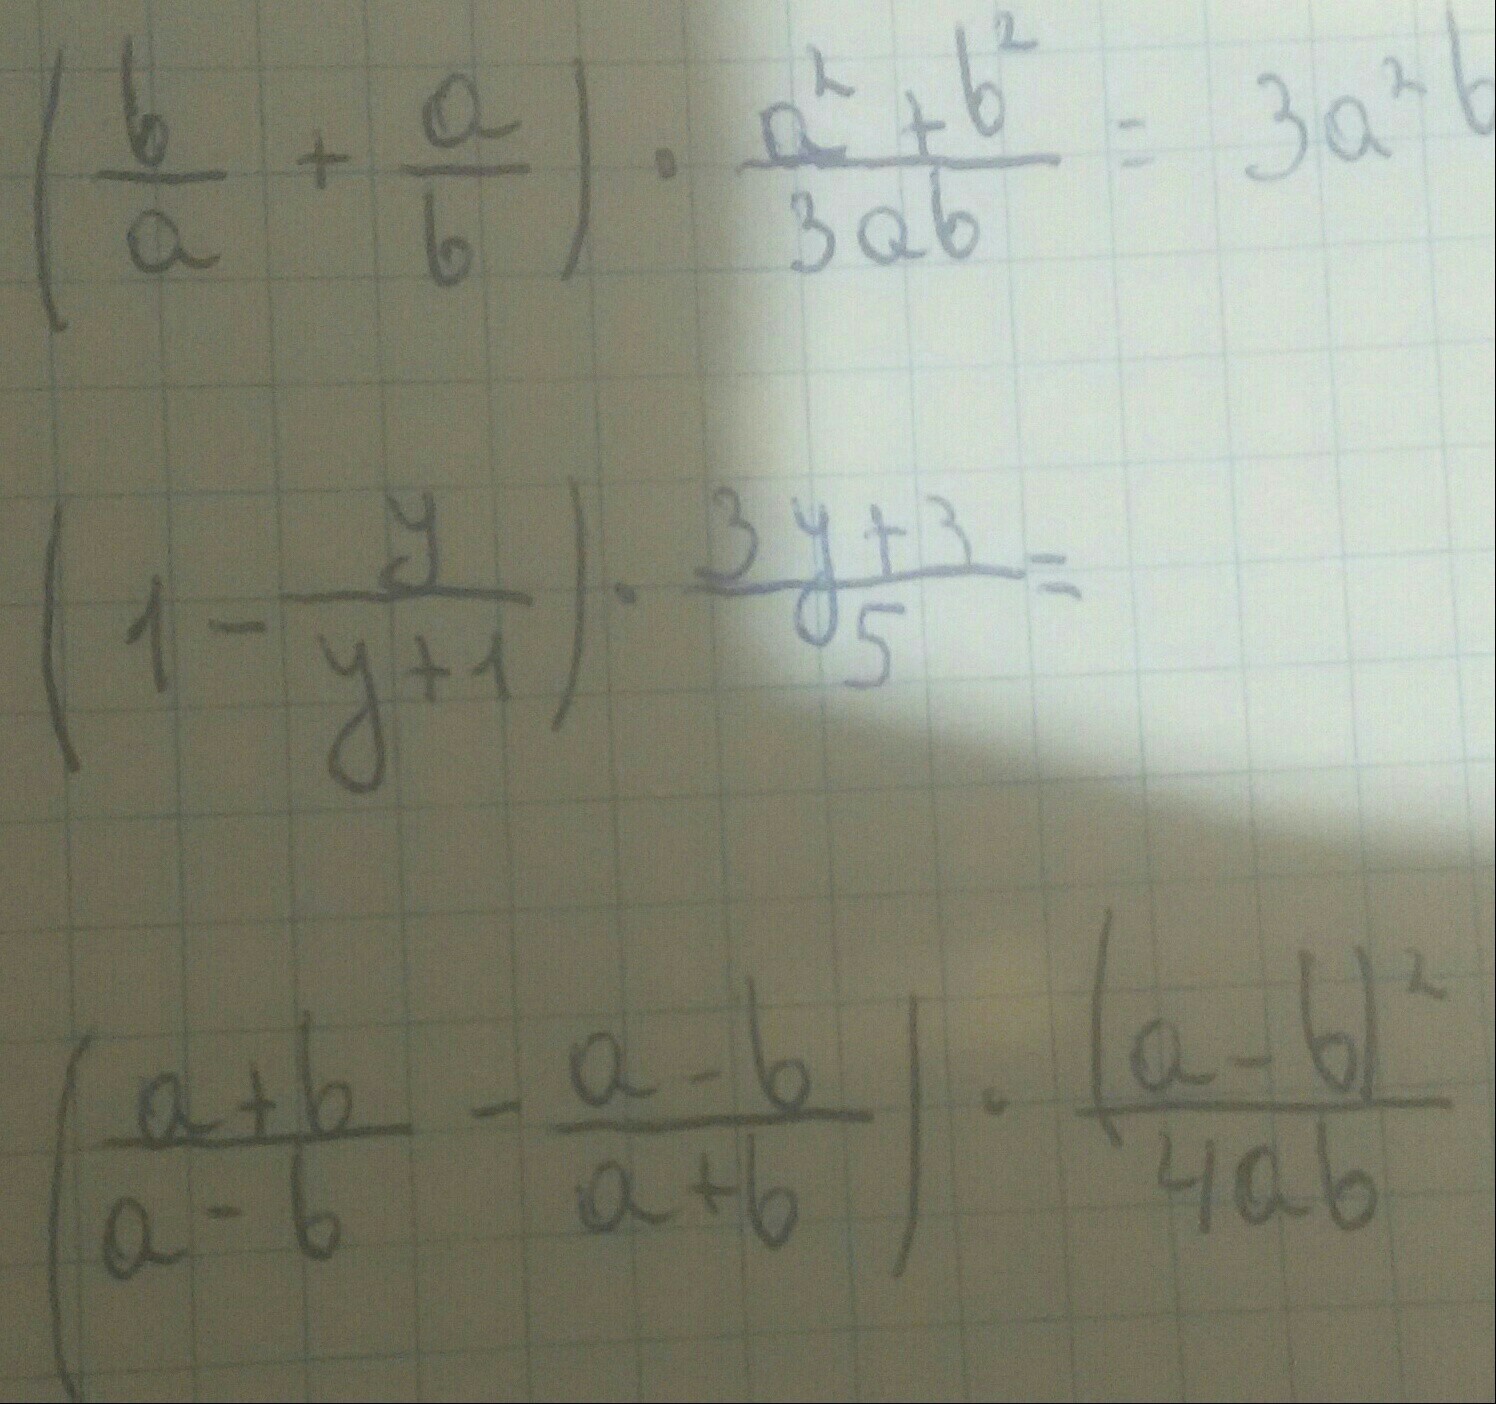 (b/a + a/b) · (a² + b²)/(3ab) = 3a²b
(1 - y/(y+1)) · (3y+3)/5 =
((a+b)/(a-b) - (a-b)/(a+b)) · (a-b)²/(4ab)